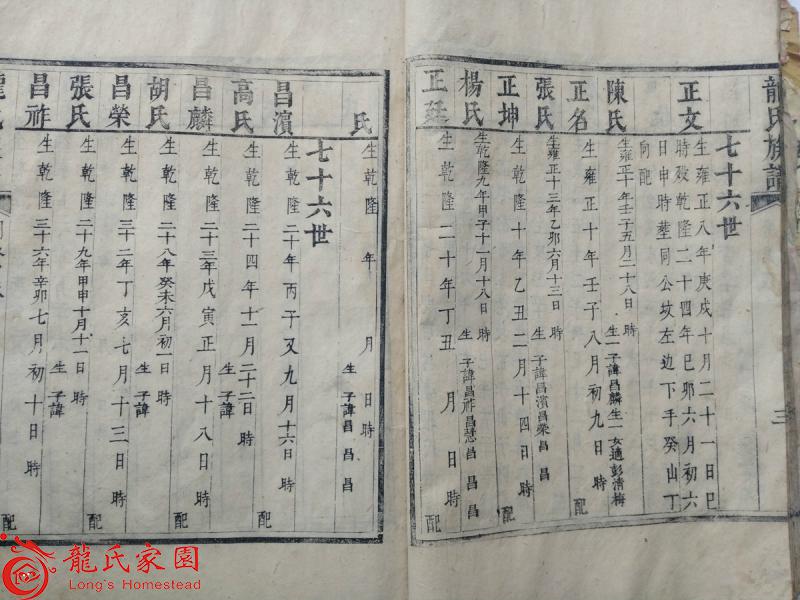 龍氏族譜
三
七十六世
正文
生雍正八年庚戌十月二十一日巳
時歿乾隆二十四年己卯六月初六
日申時塟同公坟左边下手癸山丁
向配
陳氏 生雍正十年壬子五月二十八日 時 生一子諱昌麟生一女適彭清梅
正名 生雍正十年壬子八月初九日 時 配
張氏 生雍正十三年乙卯六月十三日 時 生 子諱昌濱昌榮昌 昌
正坤 生乾隆十年乙丑二月十四日 時 配
楊氏 生乾隆九年甲子十一月十八日 時 生 子諱昌祚昌慧昌 昌
正廷 生乾隆二十年丁丑 月 日 時 配
氏 生乾隆 年 月 日 時 生 子諱昌 昌 昌
七十六世
昌濱 生乾隆二十年丙子又九月十六日 時 配
高氏 生乾隆二十四年十一月二十二日 時 生 子諱
昌麟 生乾隆二十三年戊寅正月十八日 時 配
胡氏 生乾隆二十八年癸未六月初一日 時 生 子諱
昌榮 生乾隆三十二年丁亥七月十三日 時 配
張氏 生乾隆二十九年甲申十月十一日 時 生 子諱
昌祚 生乾隆三十六年辛卯七月初十日 時 配
龍氏家園
Long's Homestead